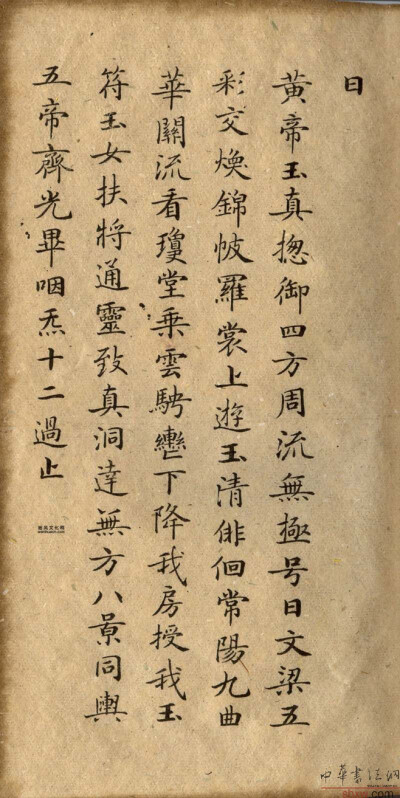 曰
黃帝玉真揔御四方周流無極号曰文梁五
彩交煥錦帔羅裳上遊玉清俳佪常陽九曲
華關流看瓊堂乗雲騁轡下降我房授我玉
符玉女扶將通靈致真洞達無方八景同輿
五帝齊光畢咽炁十二過止
中华书法网